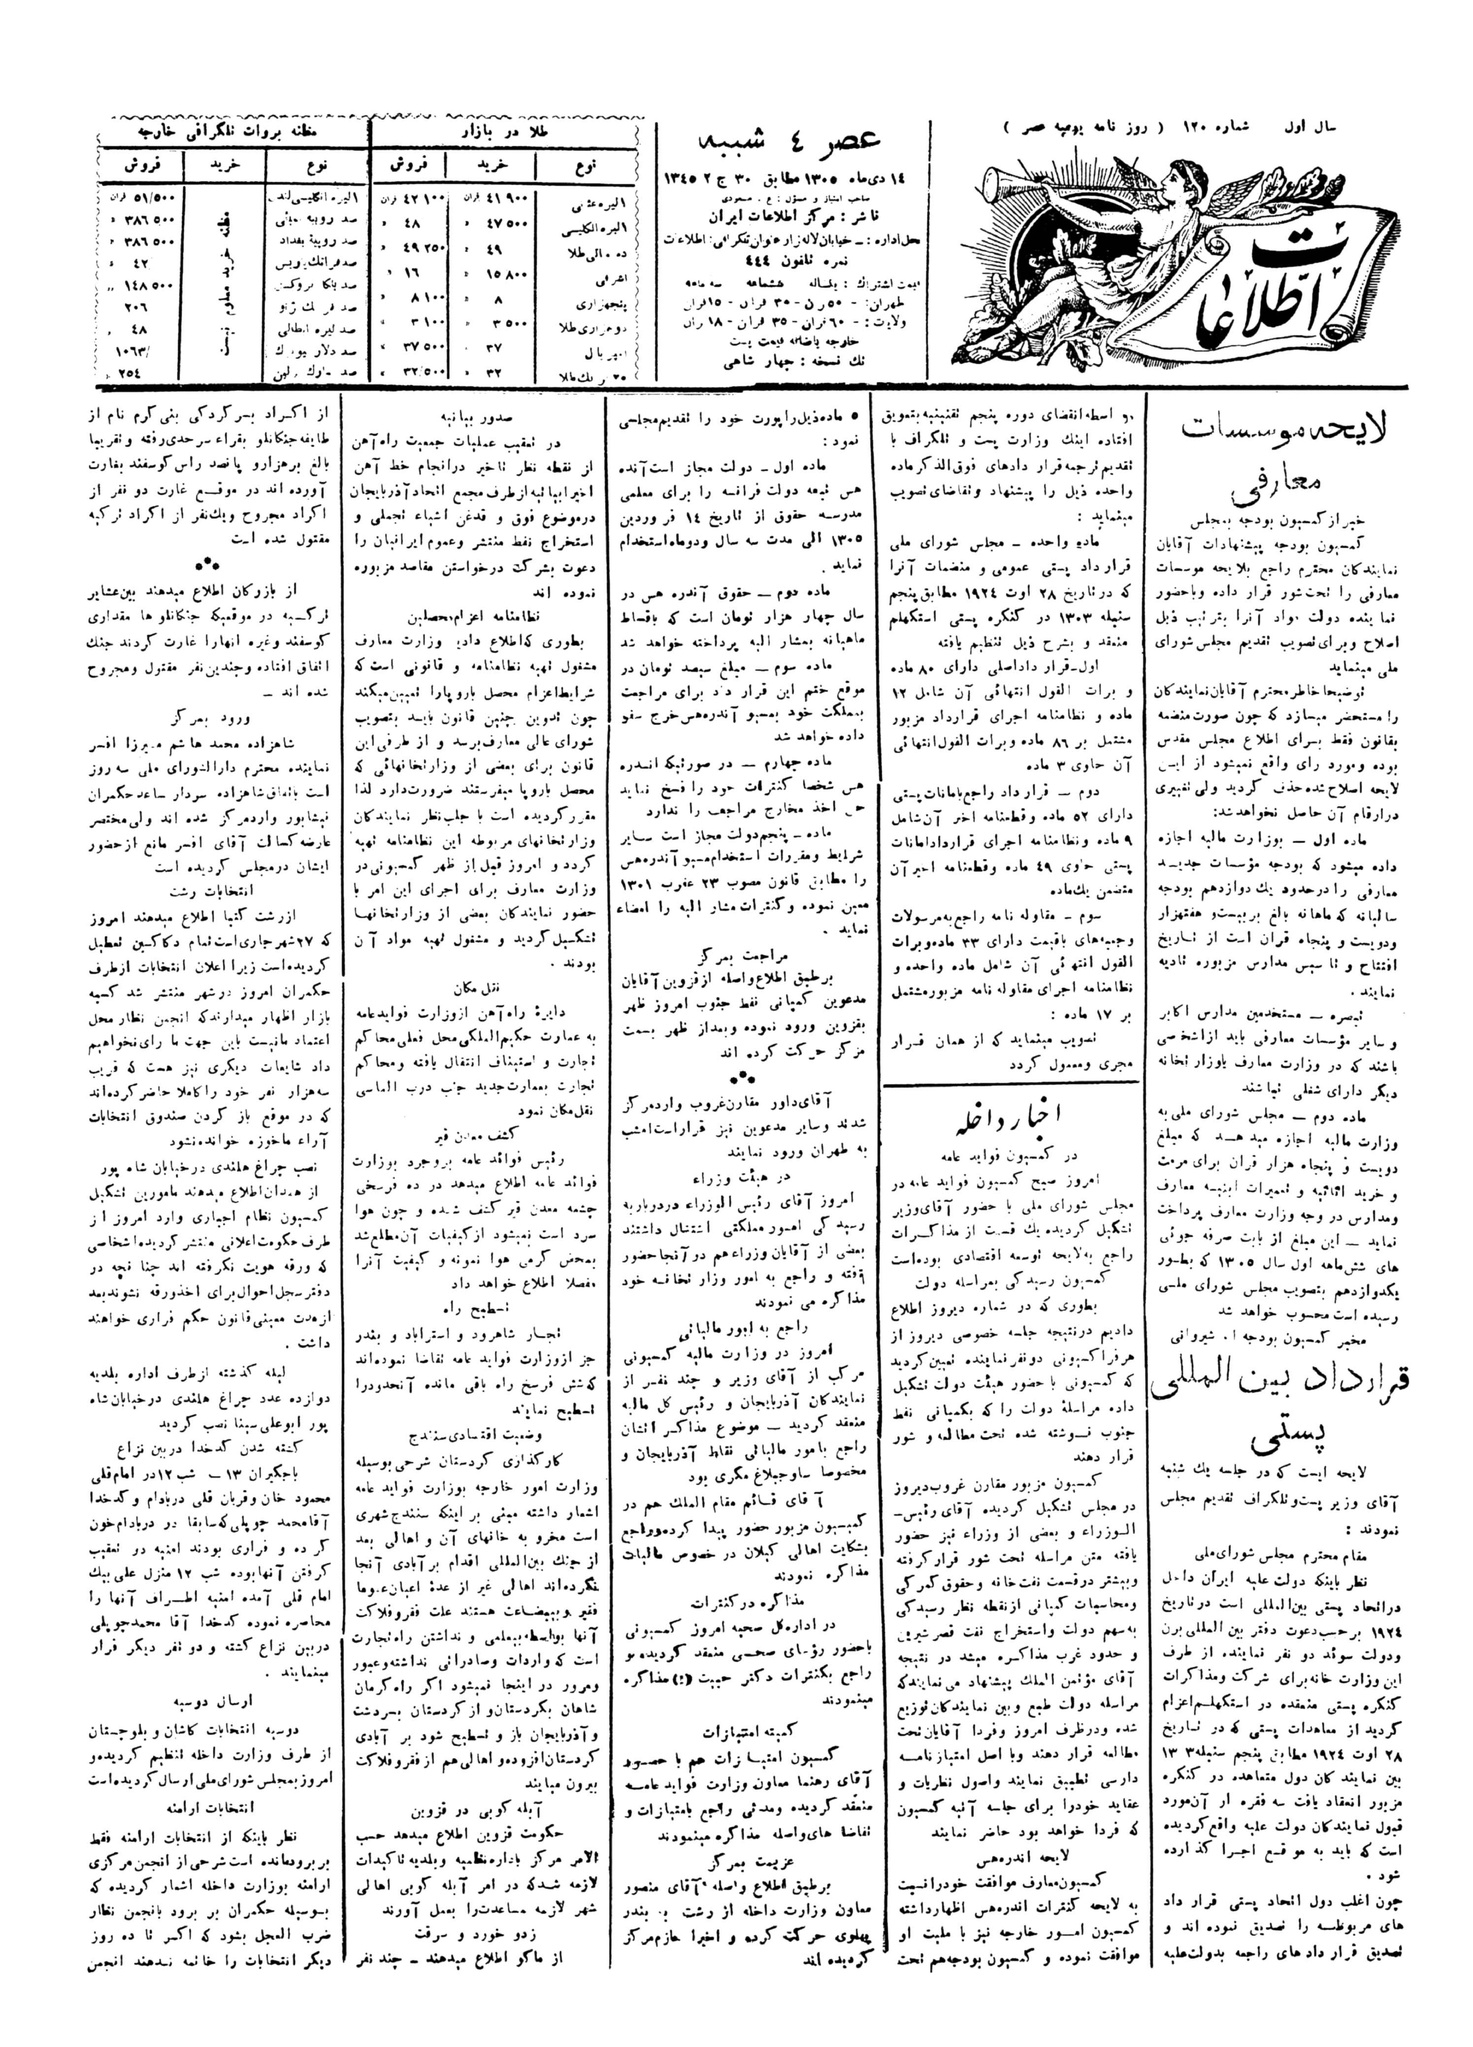 سال اول شماره ۱۲۰ ( روز نامه یومیه عصر )
اطلاعات
عصر ٤ شنبه
۱٤ دی ماه ۱۳۰۵ مطابق ۳۰ ج ۲ ۱۳٤۵
صاحب امتیاز و مسئول : ع . مسعودی
ناشر : مرکز اطلاعات ایران
محل اداره : ــ خیابان لاله زار عنوان تلگرافی : اطلاعات
نمره تلفون ٤٤٤
قیمت اشتراک : یکساله ششماهه سه ماهه
طهران : ــ ۵۰ قران - ۳۰ قران - ۱۵ قران
ولایات : ــ ۶۰ قران - ۳۵ قران - ۱۸ قران
خارجه باضافه قیمت پست
تك نسخه : چهار شاهی
طلا در بازار
نوع خرید فروش
۱ لیره عثمانی ٤۱۹۰۰ قران ٤۲۱۰۰ قران
۱ لیره انگلیسی ٤۷۵۰۰ ٤۸
ده منالی طلا ٤۹ ٤۹۲۵۰
اشرفی ۱۵۸۰۰ ۱۶
پنجهزاری ۸ ۸۱۰۰
دوهزاری طلا ۳۵۰۰ ۳۱۰۰
امپریال ۳۷ ۳۷۵۰۰
۳۲ ۳۲/۵۰۰
مظنه بروات تلگرافی خارجه
نوع خرید فروش
مظنه خرید معلوم نیست
۱ لیره انگلیسی لندن ۵۱/۵۰۰ قران
صد روپیه بمبئی ۳۸۶۵۰۰
صد روپیه بغداد ۳۸۶۵۰۰
صد فرانك پاریس ٤۲
صد بلگا بروکسل ۱٤۸۵۰۰
صد فرانك ژنو ۲۰۶
صد لیره ایطالی ٤۸
صد دلار نیویورك ۱۰۶۳/
صد مارك برلین ۲۵٤
لایحه موسسات
معارفی
خبر از کمیسیون بودجه بمجلس
کمیسیون بودجه پیشنهادات آقایان
نمایندکان محترم راجع بلایحه موسسات
معارفی را تحت شور قرار داده وباحضور
نماینده دولت مواد آنرا بترتیب ذیل
اصلاح وبرای تصویب تقدیم مجلس شورای
ملی مینماید
توضیحا خاطر محترم آقایان نمایندکان
را مستحضر میسازد که چون صورت منضمه
بقانون فقط برای اطلاع مجلس مقدس
بوده ومورد رای واقع نمیشود از این
لایحه اصلاح شده حذف گردید ولی تغییری
درارقام آن حاصل نخواهد شد :
ماده اول ــ بوزارت مالیه اجازه
داده میشود که بودجه مؤسسات جدید
معارفی را درحدود یك دوازدهم بودجه
سالیانه که ماهانه بالغ بر بیست و هفتهزار
ودویست و پنجاه قران است از تاریخ
افتتاح و تاسیس مدارس مزبوره تادیه
نمایند .
تبصره ــ مستخدمین مدارس اکابر
و سایر مؤسسات معارفی باید ازاشخاصی
باشند که در وزارت معارف یاوزارتخانه
دیگر دارای شغلی نباشند
ماده دوم ــ مجلس شورای ملی به
وزارت مالیه اجازه میدهد که مبلغ
دویست و پنجاه هزار قران برای مرمت
و خرید اثاثیه و تعمیرات ابنیه معارف
ومدارس در وجه وزارت معارف پرداخت
نماید ــ این مبلغ از بابت صرفه جوئی
های شش ماهه اول سال ۱۳۰۵ که بطور
یکدوازدهم بتصویب مجلس شورای ملی
رسیده است محسوب خواهد شد
مخبر کمیسیون بودجه ا . شیروانی
قرارداد بین المللی
پستی
لایحه ایست که در جلسه یك شنبه
آقای وزیر پست و تلگراف تقدیم مجلس
نمودند :
مقام محترم مجلس شورای ملی
نظر باینکه دولت علیه ایران داخل
دراتحاد پستی بین المللی است درتاریخ
۱۹۲٤ برحسب دعوت دفتر بین المللی برن
ودولت سوئد دو نفر نماینده از طرف
این وزارت خانه برای شرکت ومذاکرات
کنکره پستی منعقده در استکهلم اعزام
گردید از معاهدات پستی که در تاریخ
۲۸ اوت ۱۹۲٤ مطابق پنجم سنبله ۱۳۰۳
بین نمایند کان دول متعاهده در کنکره
مزبور انعقاد یافت سه فقره از آن مورد
قبول نمایندکان دولت علیه واقع گردیده
است که باید به موقع اجرا گذارده
شود .
چون اغلب دول اتحاد پستی قرار داد
های مربوطه را تصدیق نموده اند و
تصدیق قرار دادهای راجعه بدولت علیه
بواسطه انقضای دوره پنجم تقنینیه بتعویق
افتاده اینك وزارت پست و تلگراف با
تقدیم ترجمه قرار دادهای فوق الذکر ماده
واحده ذیل را پیشنهاد وتقاضای تصویب
مینماید :
ماده واحده ــ مجلس شورای ملی
قرار داد پستی عمومی و منضمات آنرا
که در تاریخ ۲۸ اوت ۱۹۲٤ مطابق پنجم
سنبله ۱۳۰۳ در کنکره پستی استکهلم
منعقد و بشرح ذیل تنظیم یافته
اول - قرار داد اصلی دارای ۸۰ ماده
و برات القول انتهائی آن شامل ۱۲
ماده و نظامنامه اجرای قرارداد مزبور
مشتمل بر ۸۶ ماده وبرات القول انتهائی
آن حاوی ۳ ماده
دوم ــ قرار داد راجع بامانات پستی
دارای ۵۲ ماده وقطنامه اخر آن شامل
۹ ماده و نظامنامه اجرای قرارداد امانات
پستی حاوی ٤۹ ماده وقطنامه اخیر آن
متضمن یك ماده
سوم ــ مقاوله نامه راجع به مرسولات
وجعبه های باقیمت دارای ۳۳ ماده وبرات
القول انتهائی آن شامل ماده واحده و
نظامنامه اجرای مقاوله نامه مزبور مشتمل
بر ۱۷ ماده :
تصویب مینماید که از همان قرار
مجری ومعمول گردد
اخبار داخله
در کمیسیون فواید عامه
امروز صبح کمیسیون فواید عامه در
مجلس شورای ملی با حضور آقای وزیر
تشکیل گردیده یك قسمت از مذاکرات
راجع به لایحه توسعه اقتصادی بوده است
کمیسیون رسیدگی بمراسله دولت
بطوری که در شماره دیروز اطلاع
دادیم درنتیجه جلسه خصوصی دیروز از
هر فراکسیونی دو نفر نماینده تعیین گردید
که کمیسیونی با حضور هیئت دولت تشکیل
داده مراسله دولت را که بکمپانی نفط
جنوب نوشته شده تحت مطالعه و شور
قرار دهند
کمیسیون مزبور مقارن غروب دیروز
در مجلس تشکیل گردیده آقای رئیس ــ
الوزراء و بعضی از وزراء نیز حضور
یافته متن مراسله تحت شور قرار گرفته
وبیشتر درقسمت نفت خانه و حقوق گمرکی
ومحاسبات کمپانی از نقطه نظر رسیدگی
به سهم دولت واستخراج نفت قصر شیرین
و حدود غرب مذاکره میشد در نتیجه
آقای مؤتمن الملك پیشنهاد می نمایند که
مراسله دولت طبع و بین نمایندکان توزیع
شده ودرظرف امروز وفردا آقایان تحت
مطالعه قرار دهند وبا اصل امتیاز نامه
دارسی تطبیق نمایند واصول نظریات و
عقاید خودرا برای جلسه آتیه کمیسیون
که فردا خواهد بود حاضر نمایند
لایحه اندره هس
کمیسیون معارف موافقت خود را نسبت
به لایحه کنترات اندره هس اظهار داشته
کمیسیون امور خارجه نیز با ملیت او
موافقت نموده و کمیسیون بودجه هم تحت
۵ ماده ذیل راپورت خود را تقدیم مجلس
نمود :
ماده اول ــ دولت مجاز است آندره
هس تبعه دولت فرانسه را برای معلمی
مدرسه حقوق از تاریخ ۱٤ فروردین
۱۳۰۵ الی مدت سه سال ودوماه استخدام
نماید .
ماده دوم ــ حقوق آندره هس در
سال چهار هزار تومان است که باقساط
ماهیانه بمشار الیه پرداخته خواهد شد
ماده سوم ــ مبلغ سیصد تومان در
موقع ختم این قرار داد برای مراجعت
بمملکت خود بمسیو آندره هس خرج سفر
داده خواهد شد
ماده چهارم ــ در صورتیکه اندره
هس شخصا کنترات خود را فسخ نماید
حق اخذ مخارج مراجعت را ندارد
ماده ــ پنجم دولت مجاز است سایر
شرایط ومقررات استخدام مسیو آندره هس
را مطابق قانون مصوب ۲۳ عقرب ۱۳۰۱
معین نموده وکنترات مشار الیه را امضاء
نماید .
مراجعت بمرکز
برطبق اطلاع واصله از قزوین آقایان
مدعوین کمپانی نفط جنوب امروز ظهر
بقزوین ورود نموده وبعداز ظهر بسمت
مرکز حرکت کرده اند
آقای داور مقارن غروب وارد مرکز
شدند وسایر مدعوین نیز قرار است امشب
به طهران ورود نمایند
در هیئت وزراء
امروز آقای رئیس الوزراء دردربار به
رسیدگی امور مملکتی اشتغال داشتند
بعضی از آقایان وزراء هم در آنجا حضور
یافته و راجع به امور وزار تخانه خود
مذاکره می نمودند
راجع به امور مالیاتی
امروز در وزارت مالیه کمیسیونی
مرکب از آقای وزیر و چند نفر از
نمایندکان آذربایجان و رئیس کل مالیه
منعقد گردید ــ موضوع مذاکر اتشان
راجع بامور مالیاتی نقاط آذربایجان و
مخصوصا ساوجبلاغ مکری بود
آقای قائم مقام الملك هم در
کمیسیون مزبور حضور پیدا کرده وراجع
بشکایت اهالی گیلان در خصوص مالیات
مذاکره نمودند
مذاکره در کنترات
در اداره کل صحیه امروز کمیسیونی
باحضور رؤسای صحی منعقد گردیده و
راجع بکنترات دکتر حبیب مذاکره
مینمودند
کمیته امتیازات
کمیسیون امتیازات هم با حضور
آقای رهنما معاون وزارت فواید عامه
منعقد گردیده ومدتی راجع بامتیازات و
تقاضا های واصله مذاکره مینمودند
عزیمت بمرکز
برطبق اطلاع واصله آقای منصور
معاون وزارت داخله از رشت به بندر
پهلوی حرکت کرده و اخیرا عازم مرکز
گردیده اند
صدور بیانیه
در تعقیب عملیات جمعیت راه آهن
از نقطه نظر تاخیر درانجام خط آهن
اخیرا بیانیه از طرف مجمع اتحاد آذربایجان
درموضوع فوق و قدغن اشیاء تجملی و
استخراج نفط منتشر وعموم ایرانیان را
دعوت بشرکت درخواستن مقاصد مزبوره
نموده اند
نظامنامه اعزام محصلین
بطوری که اطلاع دادیم وزارت معارف
مشغول تهیه نظامنامه و قانونی است که
شرایط اعزام محصل باروپا را تعیین میکند
چون تدوین چنین قانون باید بتصویب
شورای عالی معارف برسد و از طرفی این
قانون برای بعضی از وزارتخانهائی که
محصل باروپا میفرستند ضرورت دارد لذا
مقرر گردیده است با جلب نظر نمایندکان
وزارتخانهای مربوطه این نظامنامه تهیه
گردد و امروز قبل از ظهر کمیسیونی در
وزارت معارف برای اجرای این امر با
حضور نمایندکان بعضی از وزارتخانها
تشکیل گردید و مشغول تهیه مواد آن
بودند .
نقل مکان
دایرهٔ راه آهن ازوزارت فواید عامه
به عمارت حکیم الملکی محل فعلی محاکم
تجارت و استیناف انتقال یافته و محاکم
تجارت بعمارت جدید جنب درب الماسی
نقل مکان نمود
کشف معدن قیر
رئیس فوائد عامه بروجرد بوزارت
فوائد عامه اطلاع میدهد در ده فرسخی
چشمه معدن قیر کشف شده و چون هوا
سرد است نمیشود از کیفیات آن مطلع شد
بمحض گرمی هوا نمونه و کیفیت آنرا
مفصلا اطلاع خواهد داد
تسطیح راه
تجار شاهرود و استراباد و بندر
جز ازوزارت فواید عامه تقاضا نموده اند
که شش فرسخ راه باقی مانده آنحدود را
تسطیح نمایند
وضعیت اقتصادی سنندج
کارگذاری کردستان شرحی بوسیله
وزارت امور خارجه بوزارت فواید عامه
اشعار داشته مبنی بر اینکه سنندج شهری
است مخروبه خانهای آن و اهالی بعد
از جنك بین المللی اقدام بر آبادی آنجا
نکرده اند اهالی غیر از عدهٔ اعیان عموما
فقیر و بیبضاعت هستند علت فقر وفلاکت
آنها بواسطه بیعلمی و نداشتن راه تجارت
است که واردات و صادراتی نداشته وعبور
ومرور در اینجا نمیشود اگر راه کرمان
شاهان بکردستان و از کردستان بسردشت
و آذربایجان باز و تسطیح شود بر آبادی
کردستان افزوده و اهالی هم از فقر وفلاکت
بیرون میایند
آبله کوبی در قزوین
حکومت قزوین اطلاع میدهد حسب
الامر مرکز باداره نظمیه و بلدیه تاکیدات
لازمه شد که در امر آبله کوبی اهالی
شهر لازمه مساعدت را بعمل آورند
زدو خورد و سرقت
از ماکو اطلاع میدهند ــ چند نفر
از اکراد بسر کردکی بنی کرم نام از
طایفه جنکانلو بقراء سرحدی رفته و تقریبا
بالغ برهزارو پانصد راس گوسفند بغارت
آورده اند در موقع غارت دو نفر از
اکراد مجروح ویك نفر از اکراد ترکیه
مقتول شده است
از بازرکان اطلاع میدهند بین عشایر
ترکیه در موقعیکه جنکانلو ها مقداری
گوسفند وغیره انهارا غارت کردند جنك
اتفاق افتاده و چندین نفر مقتول ومجروح
شده اند ــ
ورود بمرکز
شاهزاده محمد هاشم میرزا افسر
نماینده محترم دارالشورای ملی سه روز
است باتفاق شاهزاده سردار ساعد حکمران
نیشابور وارد مرکز شده اند ولی مختصر
عارضه کسالت آقای افسر مانع از حضور
ایشان درمجلس گردیده است
انتخابات رشت
از رشت کتبا اطلاع میدهند امروز
که ۲۷ شهر جاری است تمام دکاکین تعطیل
گردیده است زیرا اعلان انتخابات از طرف
حکمران امروز درشهر منتشر شد کسبه
بازار اظهار میدارند که انجمن نظار محل
اعتماد مانیست باین جهت ما رای نخواهیم
داد شایعات دیگری نیز هست که قریب
سه هزار نفر خود را کاملا حاضر کرده اند
که در موقع باز کردن صندوق انتخابات
آراء ماخوذه خوانده نشود
نصب چراغ هلندی در خیابان شاه پور
از همدان اطلاع میدهند مامورین تشکیل
کمیسیون نظام اجباری وارد امروز از
طرف حکومت اعلانی منتشر گردیده اشخاصی
که ورقه هویت نگرفته اند چنا نچه در
دفتر سجل احوال برای اخذ ورقه نشوند بعد
ازمدت معینی قانون حکم فراری خواهند
داشت .
لیله گذشته ازطرف اداره بلدیه
دوازده عدد چراغ هلندی در خیابان شاه
پور ابوعلی سینا نصب گردید
کشته شدن کدخدا دربین نزاع
باجگیران ۱۳ ــ شب ۱۲ در امام قلی
محمود خان و قربان قلی دربادام و کدخدا
آقا محمد چوپلی که سابقا در دربادام خون
کرده و فراری بودند امنیه در تعقیب
گرفتن آنها بوده شب ۱۲ منزل علی بیك
امام قلی آمده امنیه اطراف آنها را
محاصره نموده کدخدا آقا محمد چوپلی
دربین نزاع کشته و دو نفر دیگر فرار
مینمایند .
ارسال دوسیه
دوسیه انتخابات کاشان و بلوچستان
از طرف وزارت داخله تنظیم گردیده و
امروز بمجلس شورای ملی ارسال گردیده است
انتخابات ارامنه
نظر باینکه از انتخابات ارامنه فقط
بربرود مانده است شرحی از انجمن مرکزی
ارامنه بوزارت داخله اشعار گردیده که
بوسیله حکمران بر برود بانجمن نظار
ضرب العجل بشود که اکسر تا ده روز
دیگر انتخابات را خاتمه ندهند انجمن